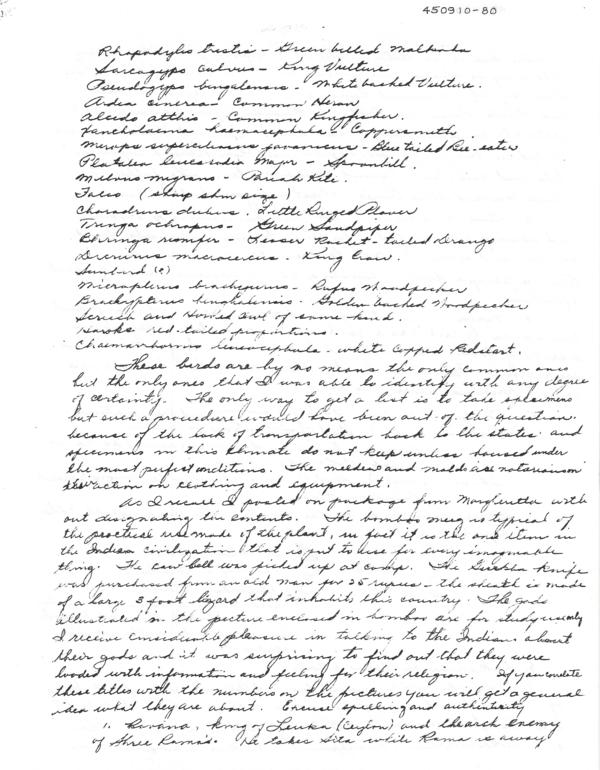 450910-80
Rhapodylis tristis - Green billed Malkoha
Sarcogyps calvus - King Vulture
Pseudogyps bengalensis - White backed Vulture.
Ardea cinerea - Common Heron
Alcedo atthis - Common Kingfisher.
haemacephala - Coppersmith
Merops superciliosus javanicus - Blue tailed Bee-eater
Platalea leucorodia Major - Spoonbill.
Milvus migrans - Pariah Kite.
Falco (sharp shin size)
Charadrius dubius. Little Ringed Plover
Tringa ochropus - Green Sandpiper
remifer - Lesser Racket-tailed Drango
Dicrurus macrocercus. King Crow.
Sunbird (?)
Micropternus brachyurus - Rufus Woodpecker
Brachypterus benghalensis - Golden backed Woodpecker
Screech and Horned Owl of some kind.
Hawks red-tailed proportions.
leucocephala - white capped Redstart.
These birds are by no means the only common ones
but the only ones that I was able to identify with any degree
of certainty. The only way to get a list is to take specimens
but such a procedure would have been out of the question
because of the lack of transportation back to the states and
specimens in this climate do not keep unless housed under
the most perfect conditions. The mildew and molds are notorious on
action on clothing and equipment.
As I recall I posted one package from Margherita with
out designating the contents. The bamboo mug is typical of
the practical use made of the plant, in fact it is the one item in
the Indian civilization that is put to use for every imaginable
thing. The cow bell was picked up at camp. The knife
was purchased from an old man for 25 rupees - the sheath is made
of a large 3 foot lizard that inhabits this country. The gods
illustrated in the picture enclosed in bamboo are for study
I receive considerable pleasure in talking to the Indians about
their gods and it was surprising to find out that they were
loaded with information and feeling for their religion. If you correlate
these titles with the numbers on the pictures you will get a general
idea what they are about. Excuse spelling and authenticity
1. Ravana, king of Lenka (Ceylon) and the arch enemy
of Shree Rama's. He takes Sita while Rama is away